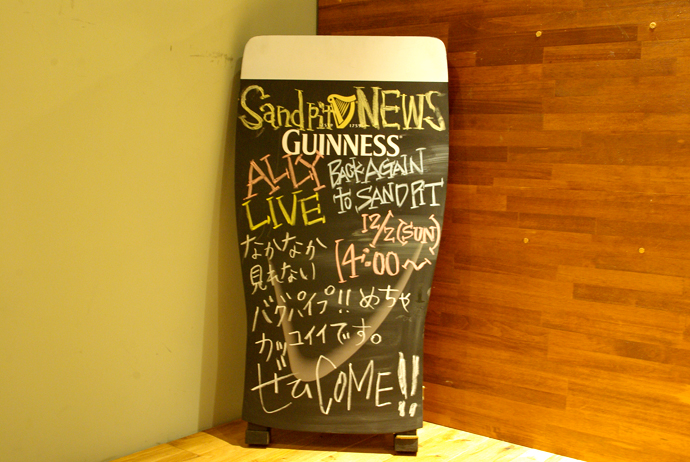 Sand Pit NEWS
GUINNESS
ALLY BACK AGAIN
LIVE to SAND PIT
12/2(SUN)
14:00〜
なかなか
見れない
バグパイプ!! めちゃ
カッコイイです。
ぜひCOME!!